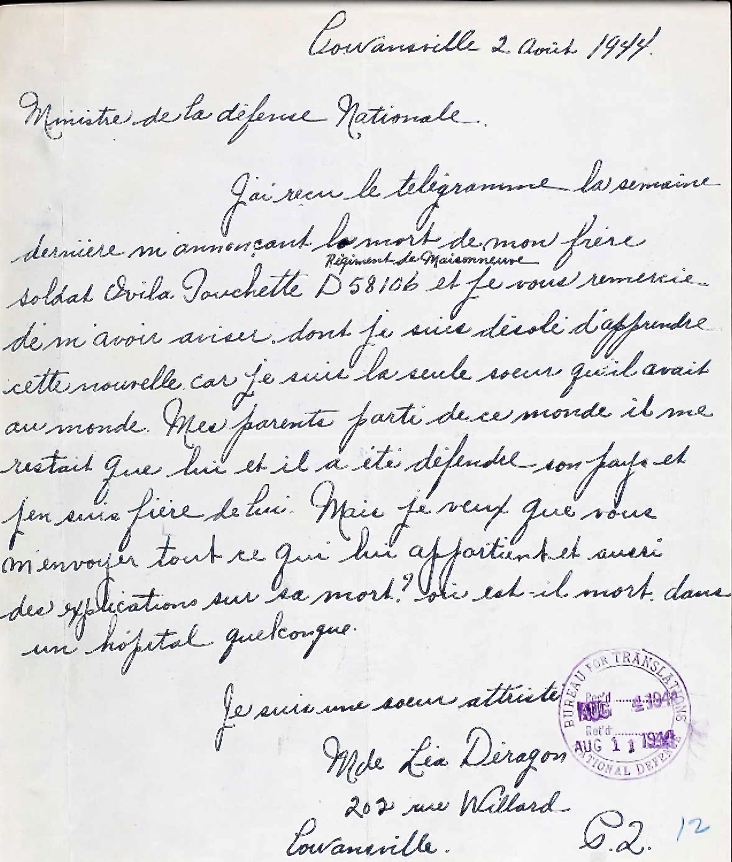 Cowansville 2 Août 1944.
Ministre de la défense Nationale.
J'ai reçu le télégramme la semaine
dernière m'annonçant la mort de mon frère
Régiment de Maisonneuve
soldat Ovila Touchette D 58106 et je vous remercie
de m'avoir aviser. dont je suis désolé d'apprendre
cette nouvelle car je suis la seule soeur qu'il avait
au monde. Mes parents parti de ce monde il me
restait que lui et il a été défendre son pays et
j'en suis fière de lui. Mais je veux que vous
m'envoyer tout ce qui lui appartient et aussi
des explications sur sa mort? où est-il mort. dans
un hôpital quelconque.
Je suis une soeur attristé
Mde Léa Déragon
202 rue Willard
Cowansville. P.Q. 12
BUREAU FOR TRANSLATIONS
Rec'd
AUG 4 1944
Ret'd
AUG 11 1944
NATIONAL DEFENCE